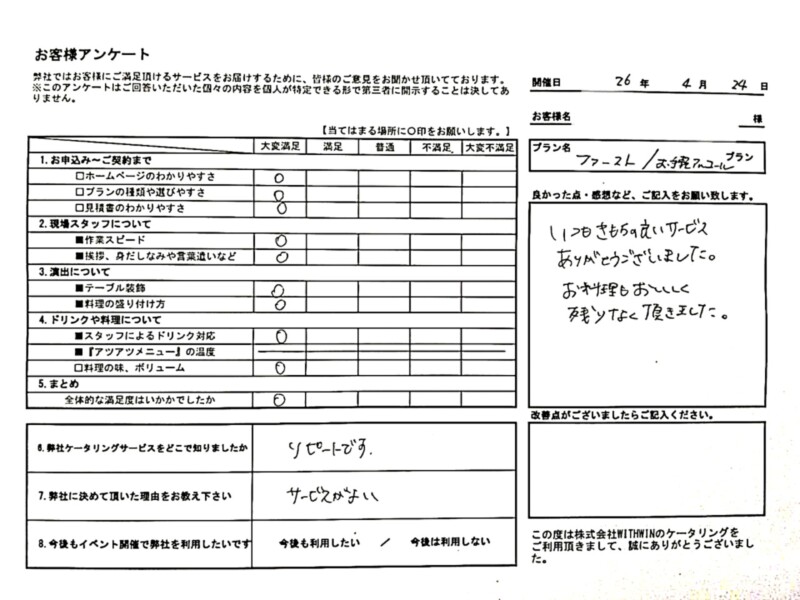 お客様アンケート
弊社ではお客様にご満足頂けるサービスをお届けするために、皆様のご意見をお聞かせ頂いてております。
※このアンケートはご回答いただいた個々の内容を個人が特定できる形で第三者に開示することは決してあ
りません。
開催日 26 年 4 月 24 日
お客様名 様
【当てはまる場所に○印をお願いします。】
大変満足 満足 普通 不満足 大変不満足
プラン名
ファースト / お手軽アンコール プラン
1.お申込み～ご契約まで
□ホームページのわかりやすさ ○
□プランの種類や選びやすさ ○
□見積書のわかりやすさ ○
2.現場スタッフについて
■作業スピード ○
■挨拶、身だしなみや言葉遣いなど ○
3.演出について
■テーブル装飾 ○
■料理の盛り付け方 ○
4.ドリンクや料理について
■スタッフによるドリンク対応 ○
■『アツアツメニュー』の温度
□料理の味、ボリューム ○
5.まとめ
全体的な満足度はいかかでしたか ○
良かった点・感想など、ご記入をお願い致します。
いつもきもちの良いサービス
ありがとうございました。
お料理もおいしく
残りなく頂きました。
改善点がございましたらご記入ください。
6.弊社ケータリングサービスをどこで知りましたか
リピートです.
7.弊社に決めて頂いた理由をお教え下さい
サービスがよい
8.今後もイベント開催で弊社を利用したいです
今後も利用したい / 今後は利用しない
この度は株式会社WITHWINのケータリングを
ご利用頂きまして、誠にありがとうございまし
た。